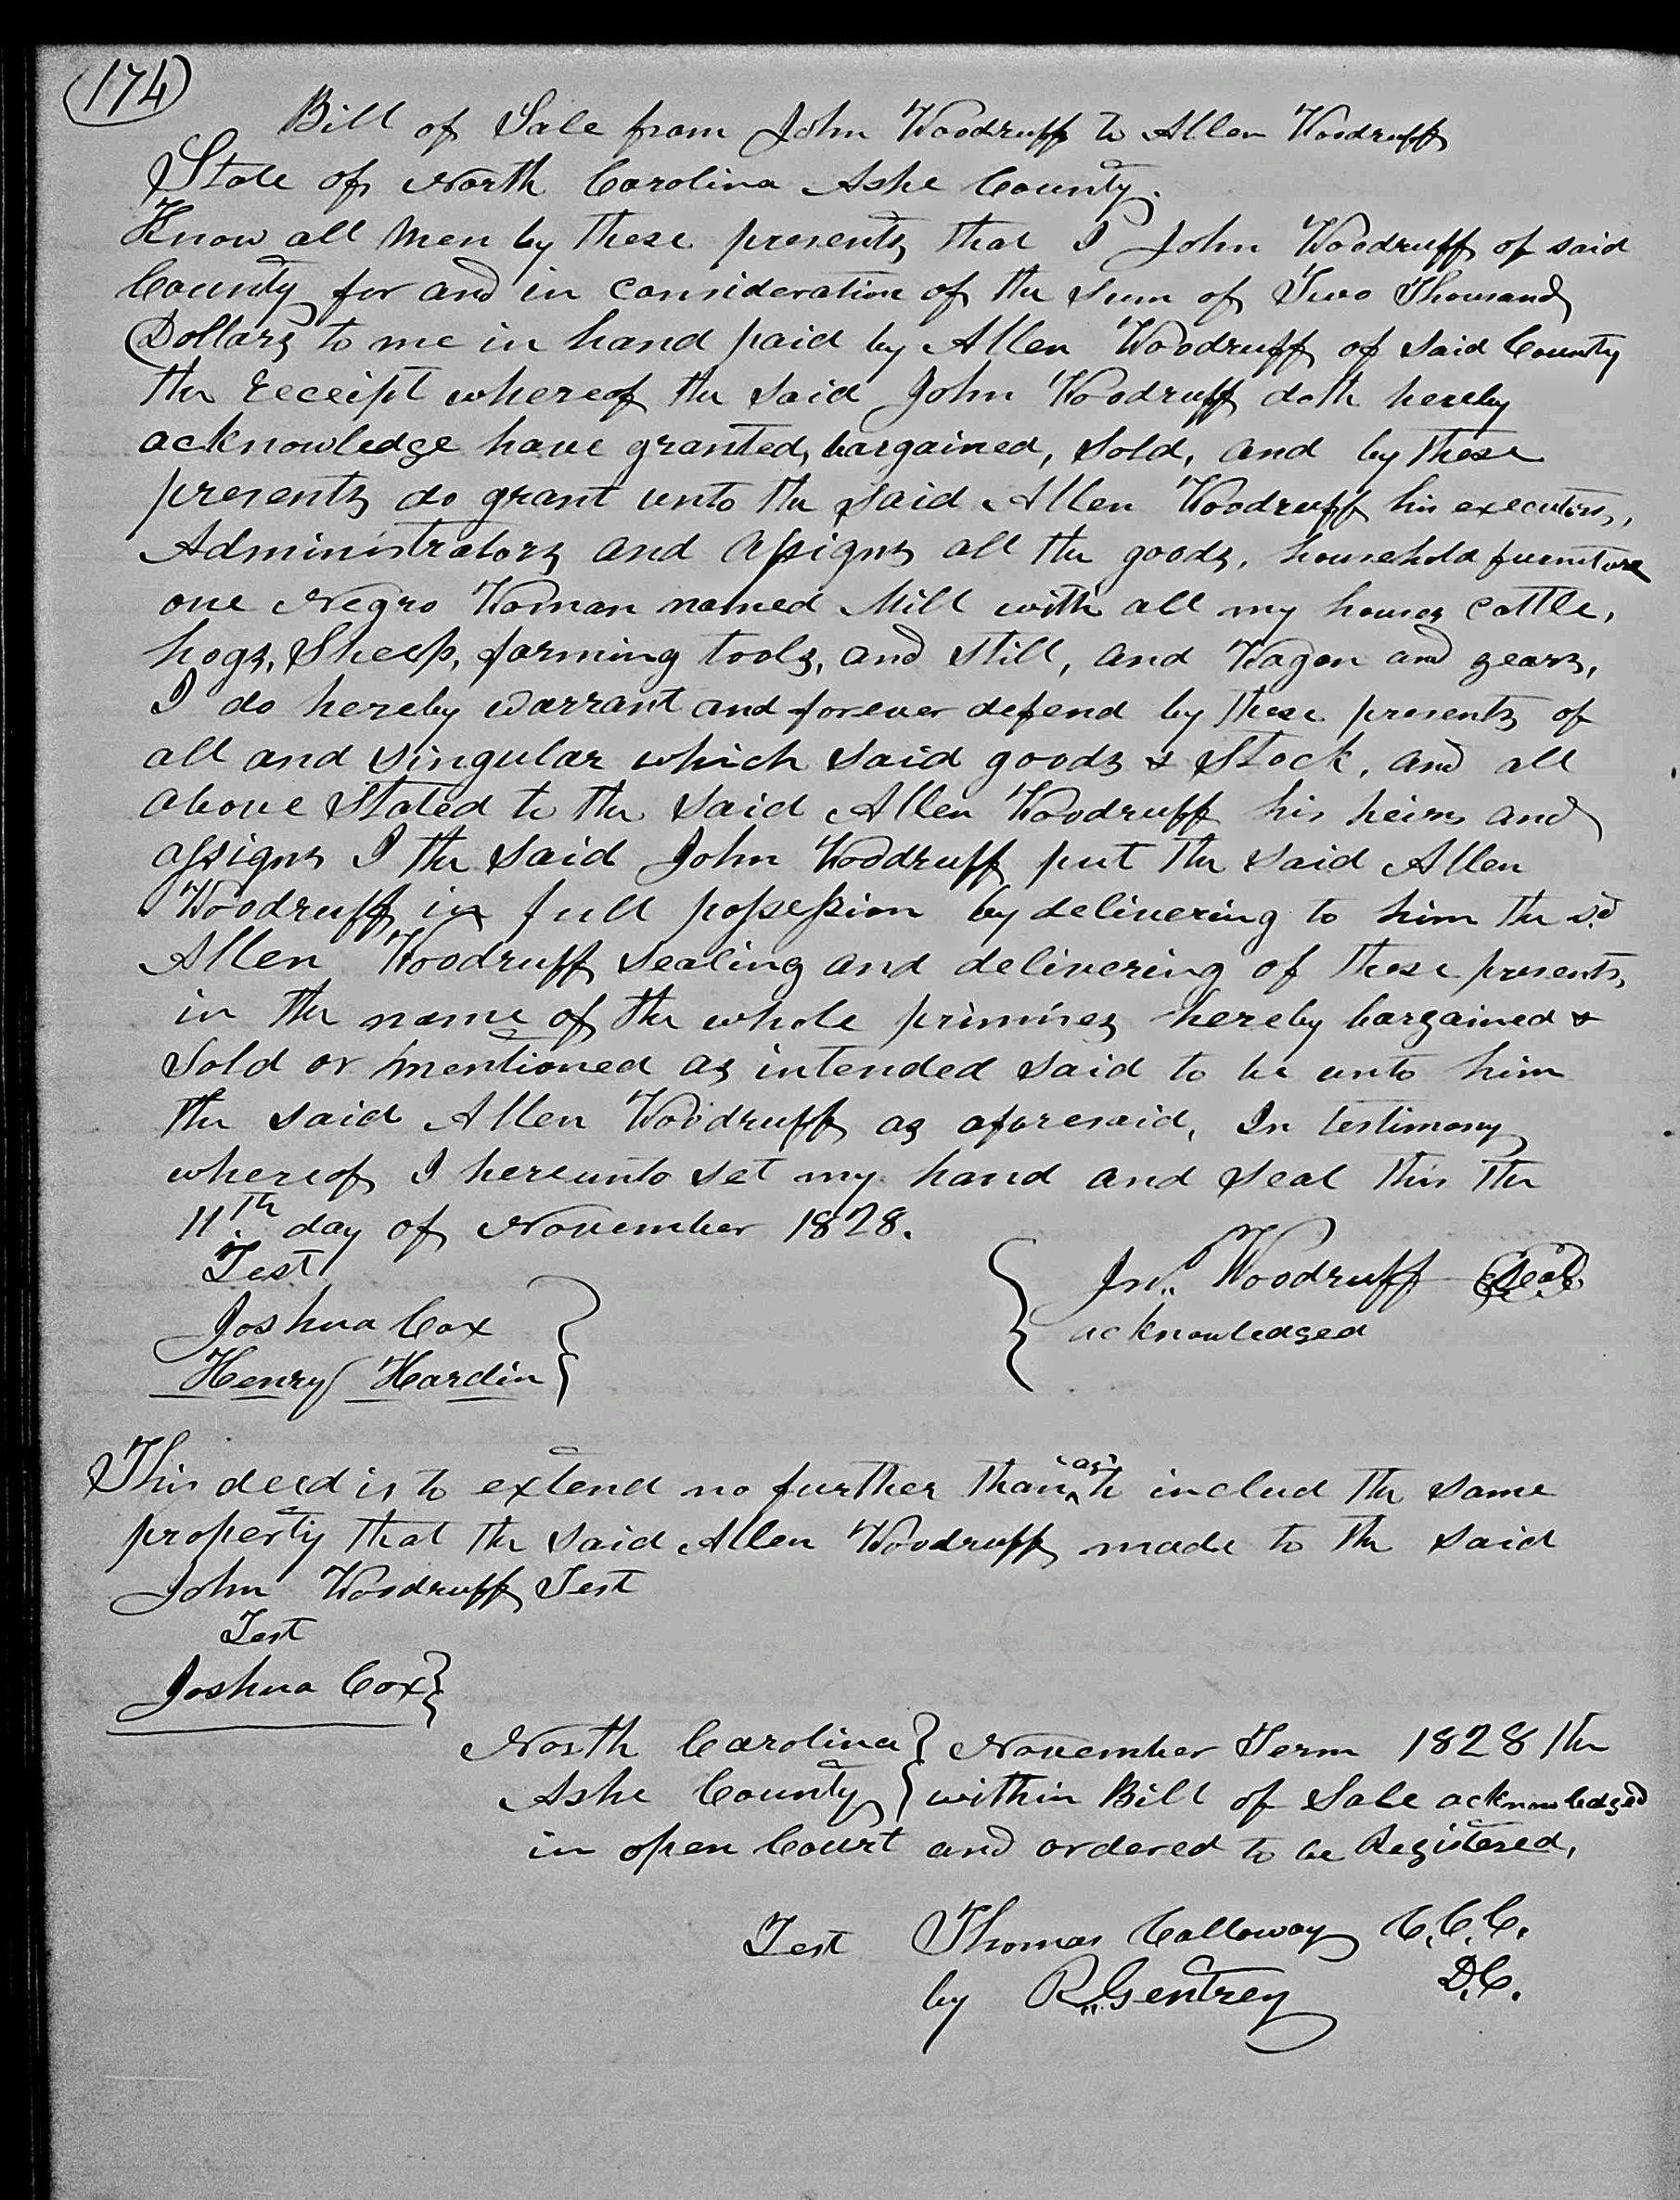 (174)
Bill of Sale from John Woodruff to Allen Woodruff
State of North Carolina Ashe County.
Know all Men by these presents that I John Woodruff of said
County for and in consideration of the sum of Two Thousand
Dollars to me in hand paid by Allen Woodruff of said County
the receipt whereof the said John Woodruff doth hereby
acknowledge have granted, bargained, sold, and by these
presents do grant unto the said Allen Woodruff his executors,
Administrators and Assigns all the goods, household furniture
one Negro Woman named Mill with all my houses cattle,
hogs, Sheep, farming tools, and still, and Wagon and gears,
I do hereby warrant and forever defend by these presents of
all and singular which said goods & Stock, and all
above Stated to the said Allen Woodruff his heirs and
assigns I the said John Woodruff put the said Allen
Woodruff in full possession by delivering to him the sd
Allen Woodruff sealing and delivering of these presents,
in the name of the whole primises hereby bargained &
Sold or mentioned as intended said to be unto him
the said Allen Woodruff as aforesaid, In testimony
whereof I hereunto set my hand and seal this the
11th day of November 1828.
Test
Jno. Woodruff Seal
Joshua Cox
acknowledged
Henry Hardin
This deed is to extend no further than as to includ the same
property that the said Allen Woodruff made to the said
John Woodruff Test
Test
Joshua Cox
North Carolina } November Term 1828 the
Ashe County } within Bill of Sale acknowledged
in open Court and ordered to be Registered,
Test Thomas Calloway C.C.C.
by R. Gentrey D.C.